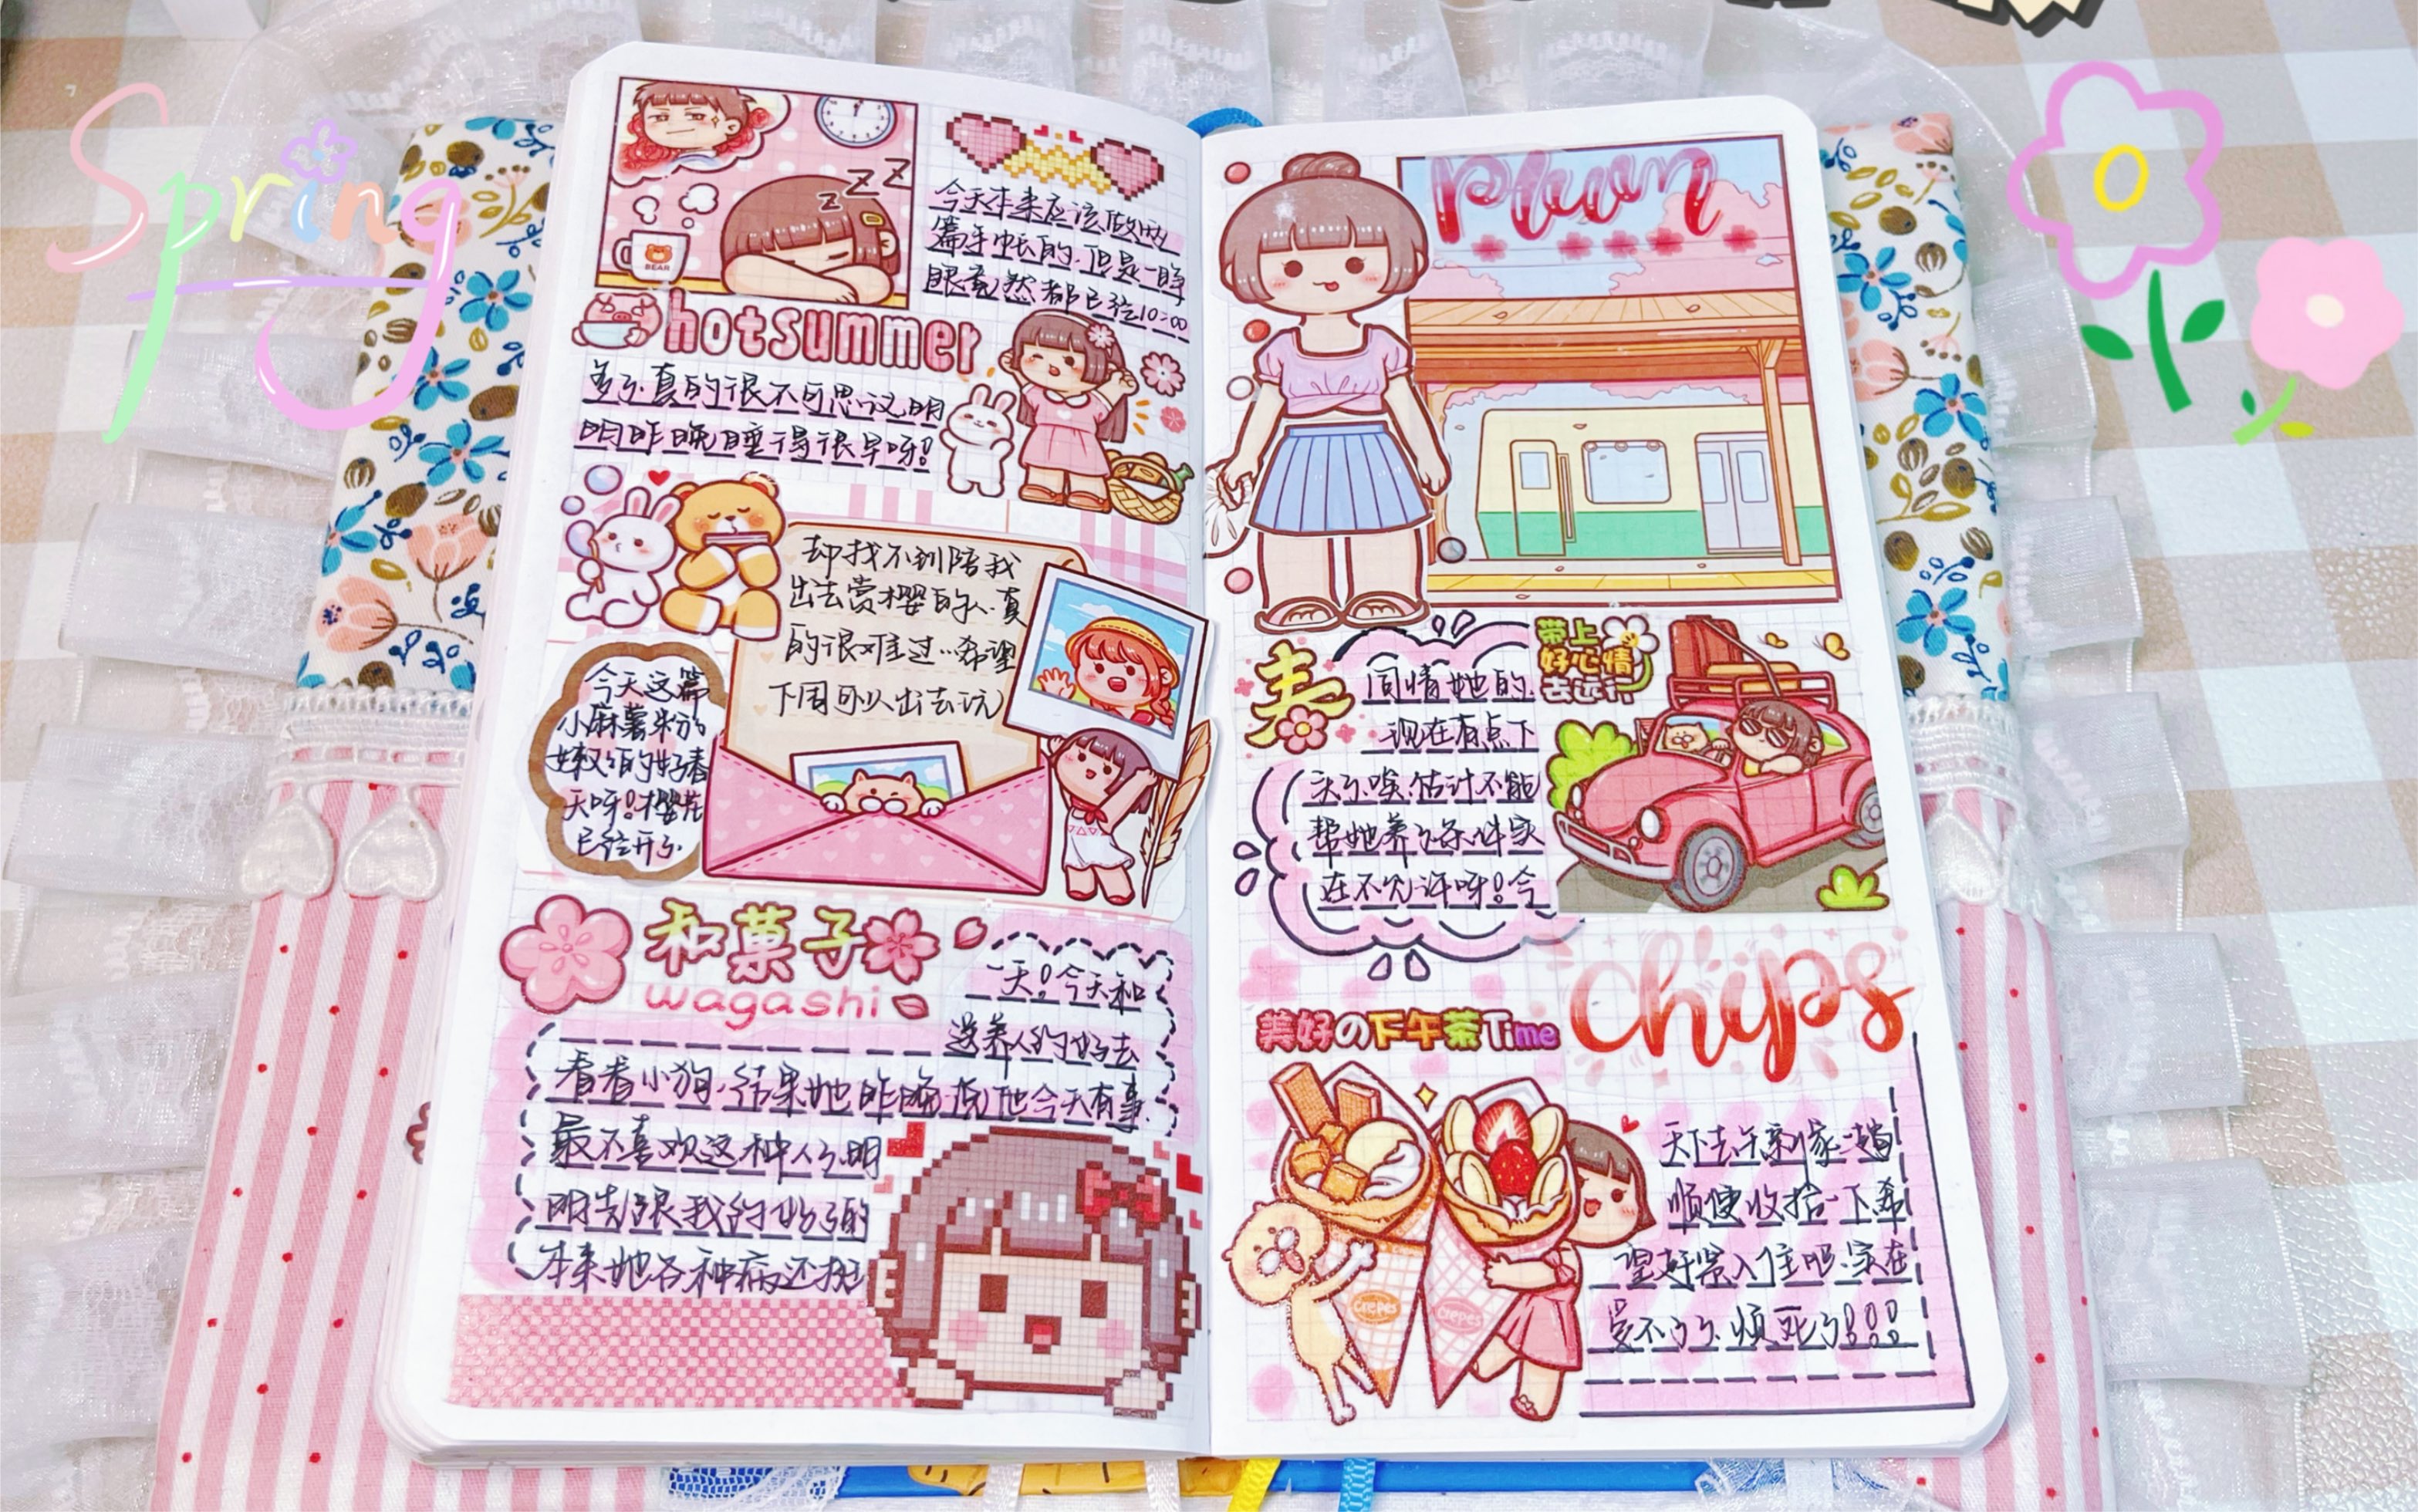 Spring
z z Z
BEAR
今天本来应该做两
篇手帐的.但是一睁
眼竟然都已经10:00
hotsummer
多了.真的很不可思议.明
明昨晚睡得很早呀!
却找不到陪我
出去赏樱的人.真
的很难过…希望
下周可以出去玩
今天这篇
小麻薯来份
好春
天呀!樱花
已经开了.
和菓子
wagashi
一天!今天和
送养人约好去
看看小狗.结果她昨晚说他今天有事.
最不喜欢这种人了.明
明先跟我约好了的
本来她各种病还挺
plum
春
带上
好心情
去远行
同情她的.
现在有点下
头了唉.估计不能
帮她养了.条件实
在不允许呀!今
chips
美好の下午茶Time
crepes
crepes
天下去午新家一趟
顺便收拾一下.希
望赶紧入住吧.实在
受不了了.烦死了!!!